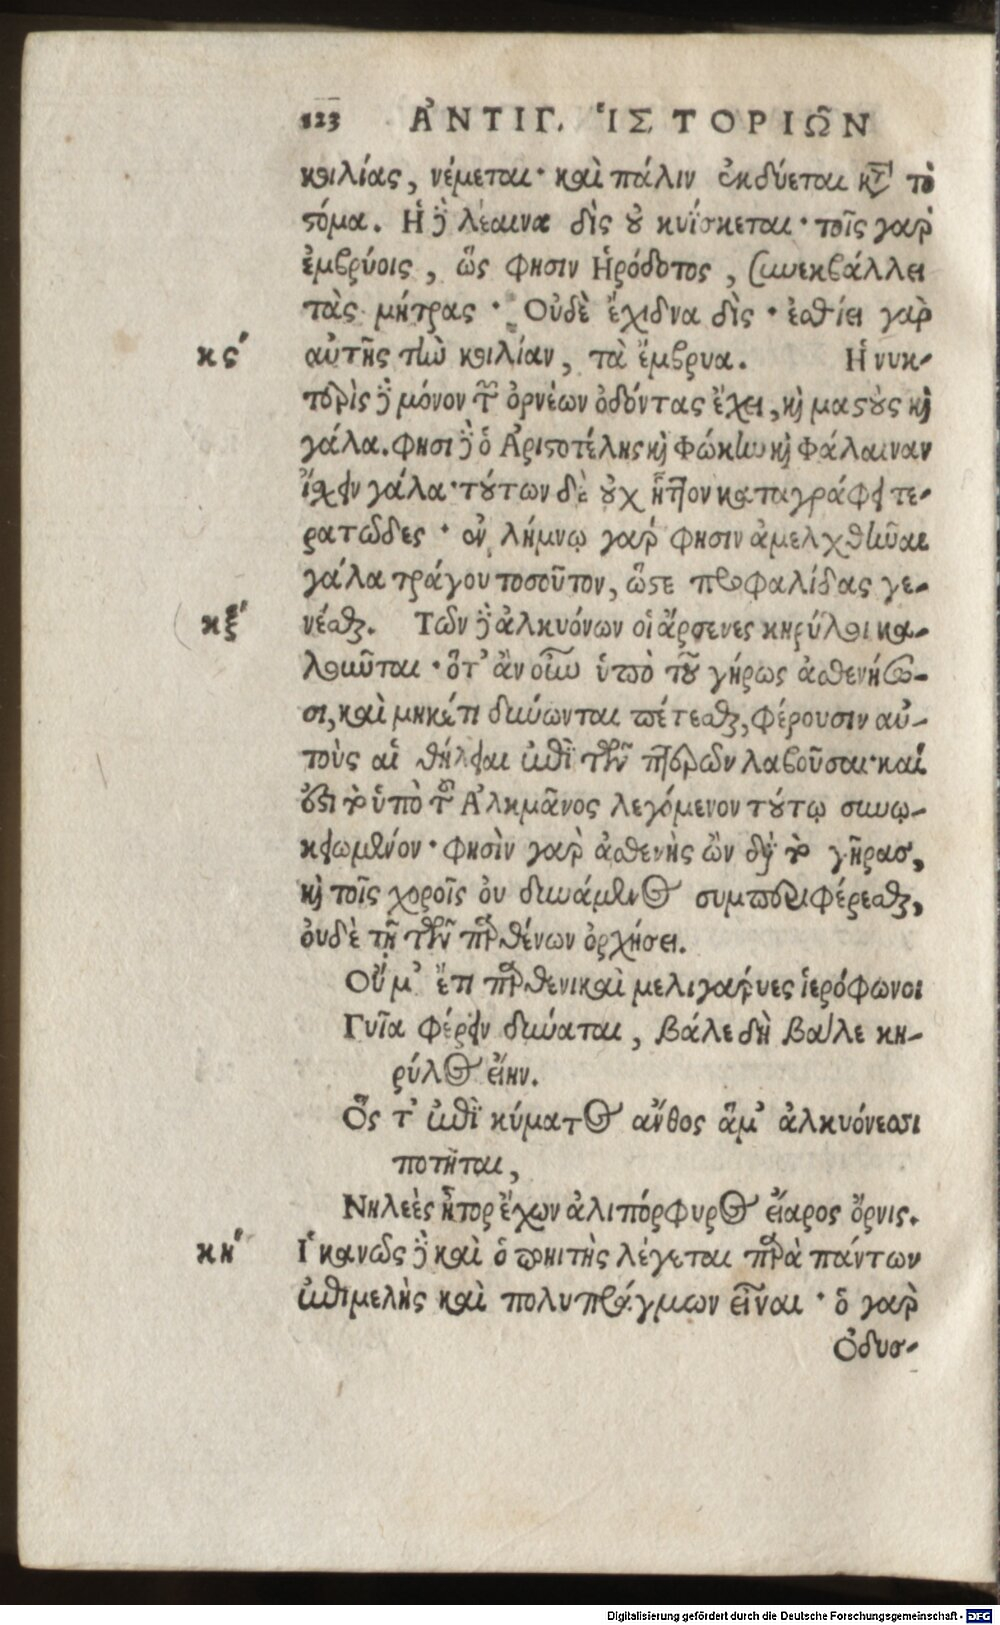 123 ἈΝΤΙΓ. ἹΣΤΟΡΙῶΝ
κοιλίας, νέμεται· καὶ πάλιν ἐκδύεται κτ τὸ
στόμα. Ἡ δὲ λέαινα δὶς οὐ κυΐσκεται· τοῖς γαρ
ἐμβρύοις, ὥς φησιν Ἡρόδοτος, συνεκβάλλει
τὰς μήτρας· Οὐδὲ ἔχιδνα δὶς· ἐσθίει γαρ
κϛʹ αὐτῆς τὴν κοιλίαν, τὰ ἔμβρυα. Ἡ νυκ-
τερὶς δὲ μόνον τῶν ὀρνέων ὀδόντας ἔχει, καὶ μαστοὺς καὶ
γάλα. φησὶ δὲ ὁ Ἀριστοτέλης καὶ φώκην καὶ φάλαιναν
ἴχειν γάλα· τούτων δὲ οὐχ ἧττον καταγράφει τε-
ρατῶδες· ἐν λήμνῳ γαρ φησιν ἀμελχθῆναι
γάλα τράγου τοσοῦτον, ὥστε τροφαλίδας γε-
κξʹ νέσθαι. Τῶν δὲ ἀλκυόνων οἱ ἄρσενες κηρύλοι κα-
λοῦνται· ὅτ' ἂν οὖν ὑπὸ τοῦ γήρως ἀσθενήσω-
σι, καὶ μηκέτι δύνωνται πέτεσθαι, φέρουσιν αὐ-
τοὺς αἱ θήλειαι ἐπὶ τῶν πτερῶν λαβοῦσαι· καί
ἔστι τὸ ὑπὸ τοῦ Ἀλκμᾶνος λεγόμενον τούτῳ συνῳ-
κειωμένον· φησὶν γαρ ἀσθενὴς ὢν διὰ τὸ γῆρας,
καὶ τοῖς χοροῖς οὐ δυνάμενος συμπεριφέρεσθαι,
οὐδὲ τῇ τῶν παρθένων ὀρχήσει.
Οὔ μ' ἔτι παρθενικαὶ μελιγαρύες ἱερόφωνοι
Γυῖα φέρειν δύναται, βάλε δὴ βάλε κη-
ρύλος εἴην.
Ὅς τ' ἐπὶ κύματος ἄνθος ἅμ' ἀλκυόνεσσι
ποτῆται,
Νηλεὲς ἦτορ ἔχων ἁλιπόρφυρος εἴαρος ὄρνις.
κηʹ Ἱκανῶς δὲ καὶ ὁ ποιητὴς λέγεται παρὰ πάντων
ἐπιμελὴς καὶ πολυπράγμων εἶναι· ὁ γαρ
Ὀδυσ-
Digitalisierung gefördert durch die Deutsche Forschungsgemeinschaft - DFG